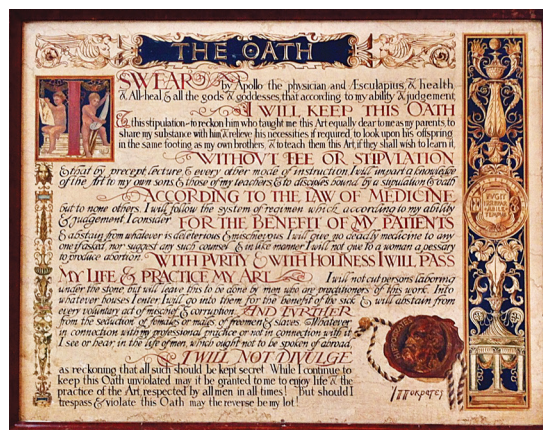 THE OATH
I SWEAR by Apollo the physician and Æsculapius, & health,
& All-heal, & all the gods & goddesses, that, according to my ability & judgement,
I WILL KEEP THIS OATH
& this stipulation-to reckon him who taught me this Art equally dear to me as my parents, to
share my substance with him & relieve his necessities if required, to look upon his offspring
in the same footing as my own brothers, & to teach them this Art, if they shall wish to learn it,
WITHOVT FEE OR STIPVLATION
& that by precept, lecture, & every other mode of instruction, I will impart a knowledge
of the Art to my own sons, & those of my teachers, & to disciples bound by a stipulation & oath
ACCORDING TO THE LAW OF MEDICINE
but to none others. I will follow the system of regimen which, according to my ability
& judgement, I consider FOR THE BENEFIT OF MY PATIENTS
& abstain from whatever is deleterious & mischievous. I will give no deadly medicine to any
one if asked, nor suggest any such counsel & in like manner I will not give to a woman a pessary
to produce abortion. WITH PVRITY & WITH HOLINESS I WILL PASS
MY LIFE & PRACTICE MY ART I will not cut persons laboring
under the stone, but will leave this to be done by men who are practitioners of this work. Into
whatever houses I enter, I will go into them for the benefit of the sick & will abstain from
every voluntary act of mischief & corruption, AND FVRTHER
from the seduction of females or males, of freemen & slaves. Whatever
in connection with my professional practice or not in connection with it
I see or hear, in the life of men, which ought not to be spoken of abroad,
I WILL NOT DIVULGE
as reckoning that all such should be kept secret. While I continue to
keep this Oath unviolated may it be granted to me to enjoy life & the
practice of the Art, respected by all men, in all times! but should I
trespass & violate this Oath may the reverse be my lot!
FVGIT
TEMPVS